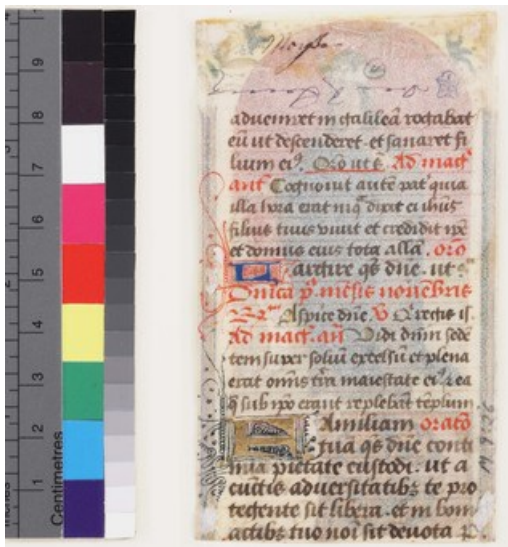 9
8
7
6
5
4
3
2
1
Centimetres
aduenıret in galilea rogabat
eu ut descenderet et sanaret fi
lium ei⁹. Oro ut s̄. Ad mag̃
ant Cognouit aute pat̾ quia
illa hora erat in q̄ dixit ei ihūs
filius tuus viuit et credidit ip̄e
et domus eius tota alla. oro
Largire q̄s dn̄e. ut
Dnica p̾. mēsis nouēbris
Aspice dn̄e V Qui regis is.
Ad mag̃. an̄ Vidi dn̄m sede
tem super soliū excelsū et plena
erat omnis t̾ra maiestate ei⁹ 7 ea
q̄ sub ip̄o erant replebāt tēplum
Familiam oracō
tuā q̄s dn̄e conti
nua pietate custodi. ut a
cūctis aduersitatib⁊ te pro
tegente sit libera. et in bon
actib⁊ tuo noi sit deuota